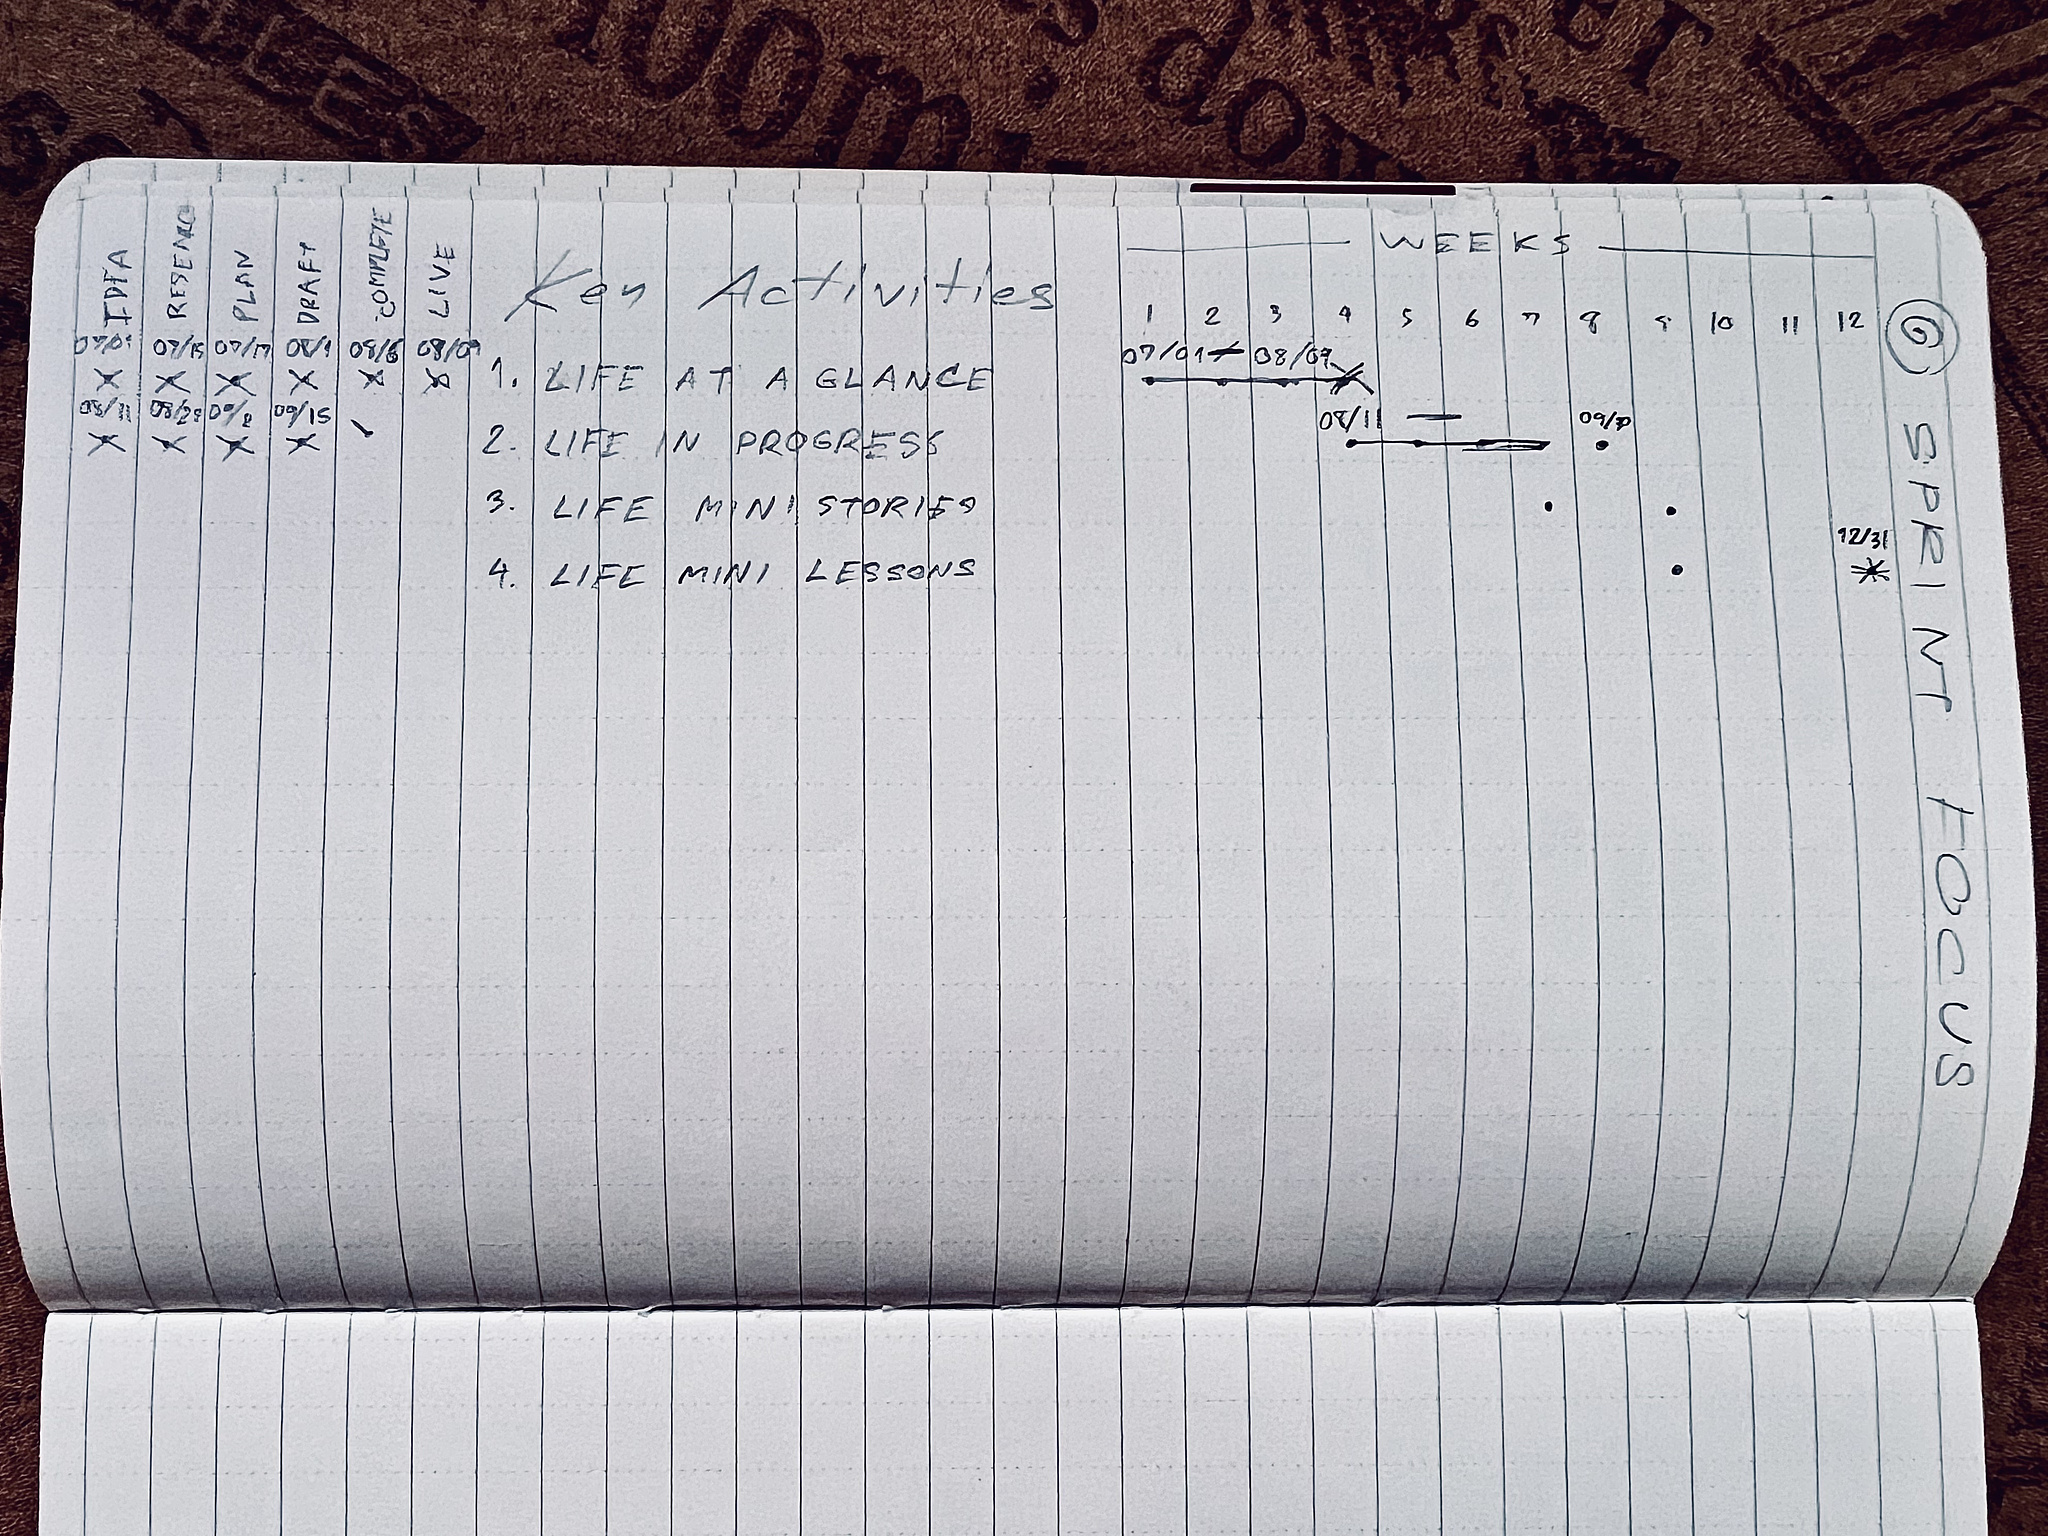 WEEKS
IDEA RESEARCH PLAN DRAFT COMPLETE LIVE Key Activities 1 2 3 4 5 6 7 8 9 10 11 12
07/15 07/17 08/1 08/6 08/09 07/01 08/09
X X X X X X 1. LIFE AT A GLANCE
08/11 09/15 08/11 — 09/30
X X X X 2. LIFE IN PROGRESS
3. LIFE MINI STORIES
12/31
4. LIFE MINI LESSONS
6 SPRINT FOCUS